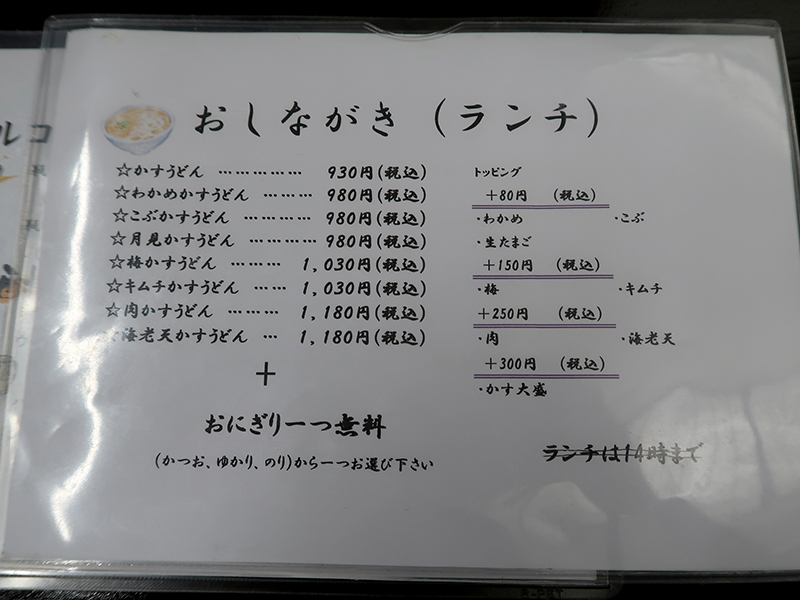 おしながき（ランチ）
☆かすうどん ……………… 930円(税込)
☆わかめかすうどん ………… 980円(税込)
☆こぶかすうどん ………… 980円(税込)
☆月見かすうどん ………… 980円(税込)
☆梅かすうどん ……… 1,030円(税込)
☆キムチかすうどん …… 1,030円(税込)
☆肉かすうどん ……… 1,180円(税込)
☆海老天かすうどん … 1,180円(税込)
＋
おにぎり一つ無料
(かつお、ゆかり、のり)から一つお選び下さい
トッピング
＋80円 （税込）
・わかめ ・こぶ
・生たまご
＋150円 （税込）
・梅 ・キムチ
＋250円 （税込）
・肉 ・海老天
＋300円 （税込）
・かす大盛
ランチは14時まで
ルコ